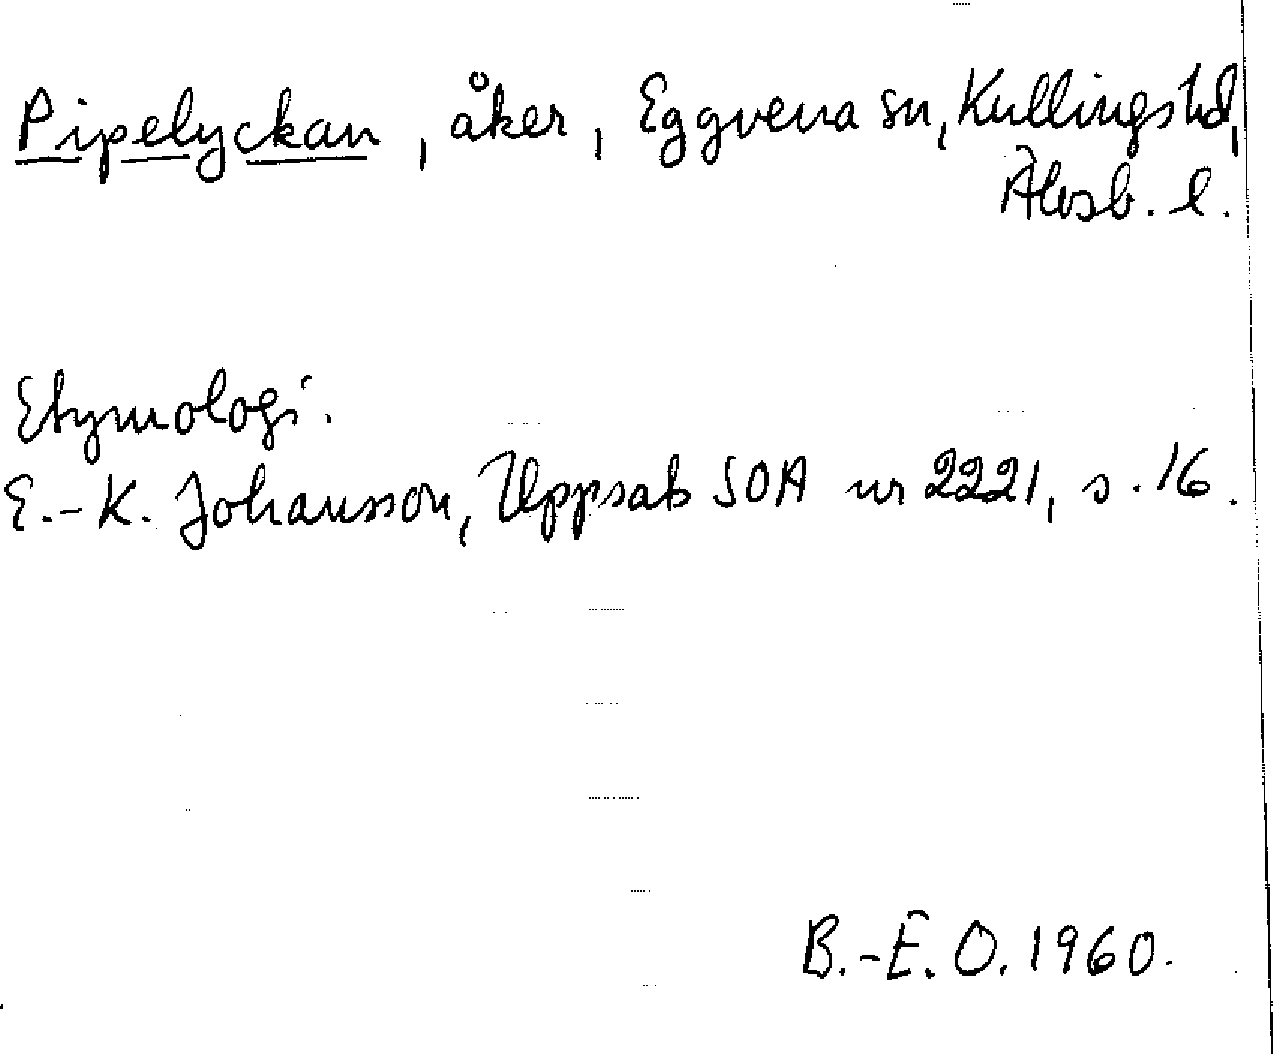 Pipelyckan, åker, Eggvena sn, Kullings hd,
Älvsb. l.
Etymologi.
E.-K. Johansson, Uppsats SOA nr 2221, s. 16.
B.-E. O. 1960.